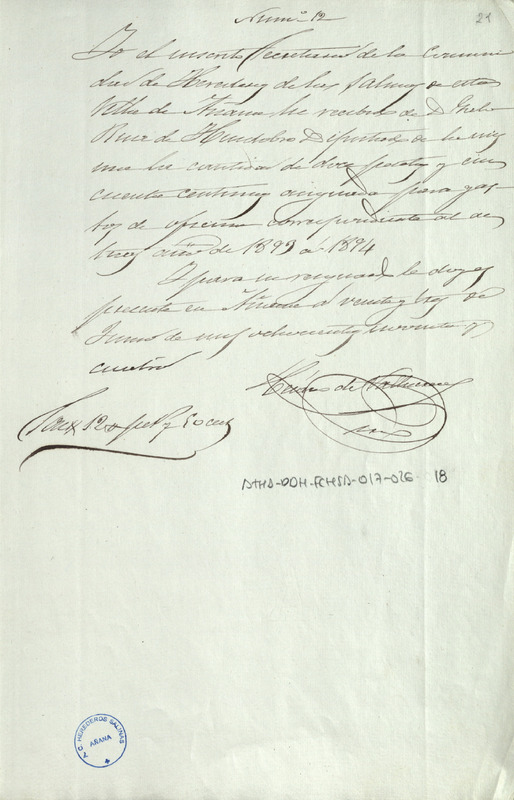 Num.º 12
21
Yo el infrascrito Secretario de la Comuni
dad de Herederos de las Salinas de esta
Villa de Añana he recibido de D.
Ruiz de Diputado de la mis
ma la cantidad de doce pesetas y cin
cuenta centimos asignada para gas
tos de oficina correspondiente al
año de 1893 á 1894
Y para su resguardo le doy el
presente en Añana a veinte y tres de
Junio de mil ochocientos noventa y
cuatro
Son 12 pes.s y 50 cen.s
ATHA-DDH-FCHSA-017-026 18
C. HEREDEROS SALINAS
AÑANA